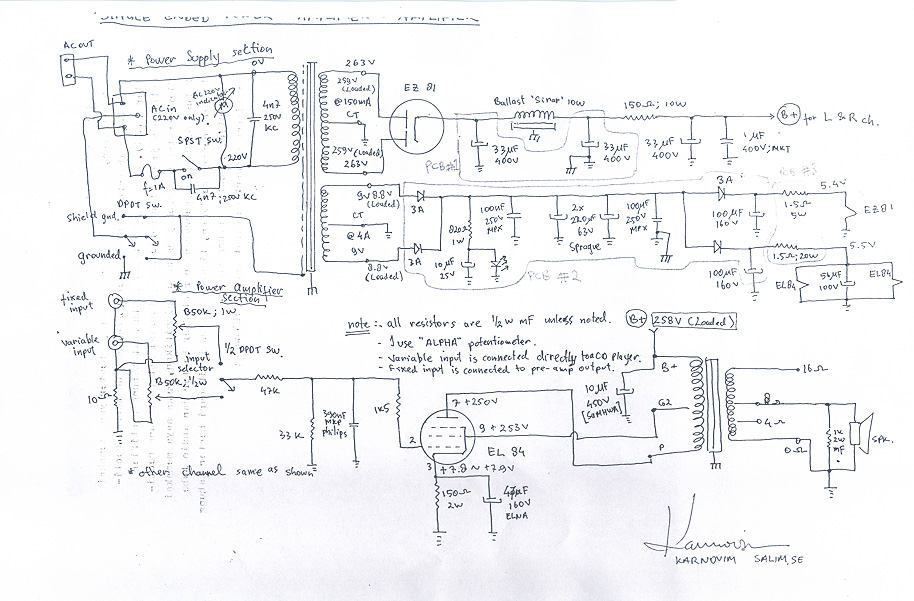 SINGLE ENDED POWER AMPLIFIER
AC OUT
* Power Supply section
AC in
(220V only)
AC 220V
indicator
M
0V
4n7
250V
KC
SPST SW.
on
220V
f=1A
4n7; 250V KC
DPDT SW.
Shield gnd.
grounded
263V
259V
(Loaded)
@150mA
CT
259V (Loaded)
263V
EZ 81
Ballast 'Sinar' 10W
150Ω; 10W
B+
for L & R ch.
33µF
400V
33µF
400V
33µF
400V
1µF
400V; MKT
PCB#1
9V 8.8V
(Loaded)
CT
@ 4A
9V
8.8V
(Loaded)
3A
3A
820Ω
1W
100nF
250V
MPX
10µF
25V
2x
220µF
63V
Sprague
100nF
250V
MPX
PCB #2
3A
100µF
160V
1.5Ω
5W
5.4V
EZ81
100µF
160V
1.5Ω; 20W
5.5V
EL84
56µF
100V
EL84
* Power Amplifier
Section
fixed
input
B50K; 1W
variable
input
1/2 DPDT SW.
input
selector
B50K; 1/2W
10Ω
47K
33K
390nF
MKP
Philips
1K5
* other channel same as shown
note :- all resistors are 1/2 W mF unless noted.
- I use "ALPHA" potentiometer.
- Variable input is connected directly to a CD player.
- Fixed input is connected to pre-amp output.
B+ 258V (Loaded)
10µF
450V
B+
G2
P
7 +250V
9 +253V
2
EL 84
3 +7.8 ~ +7.9V
150Ω
2W
47µF
160V
ELNA
16Ω
8Ω
4Ω
0Ω
1K
2W
mF
SPK.
KARNOVIM SALIM, SE